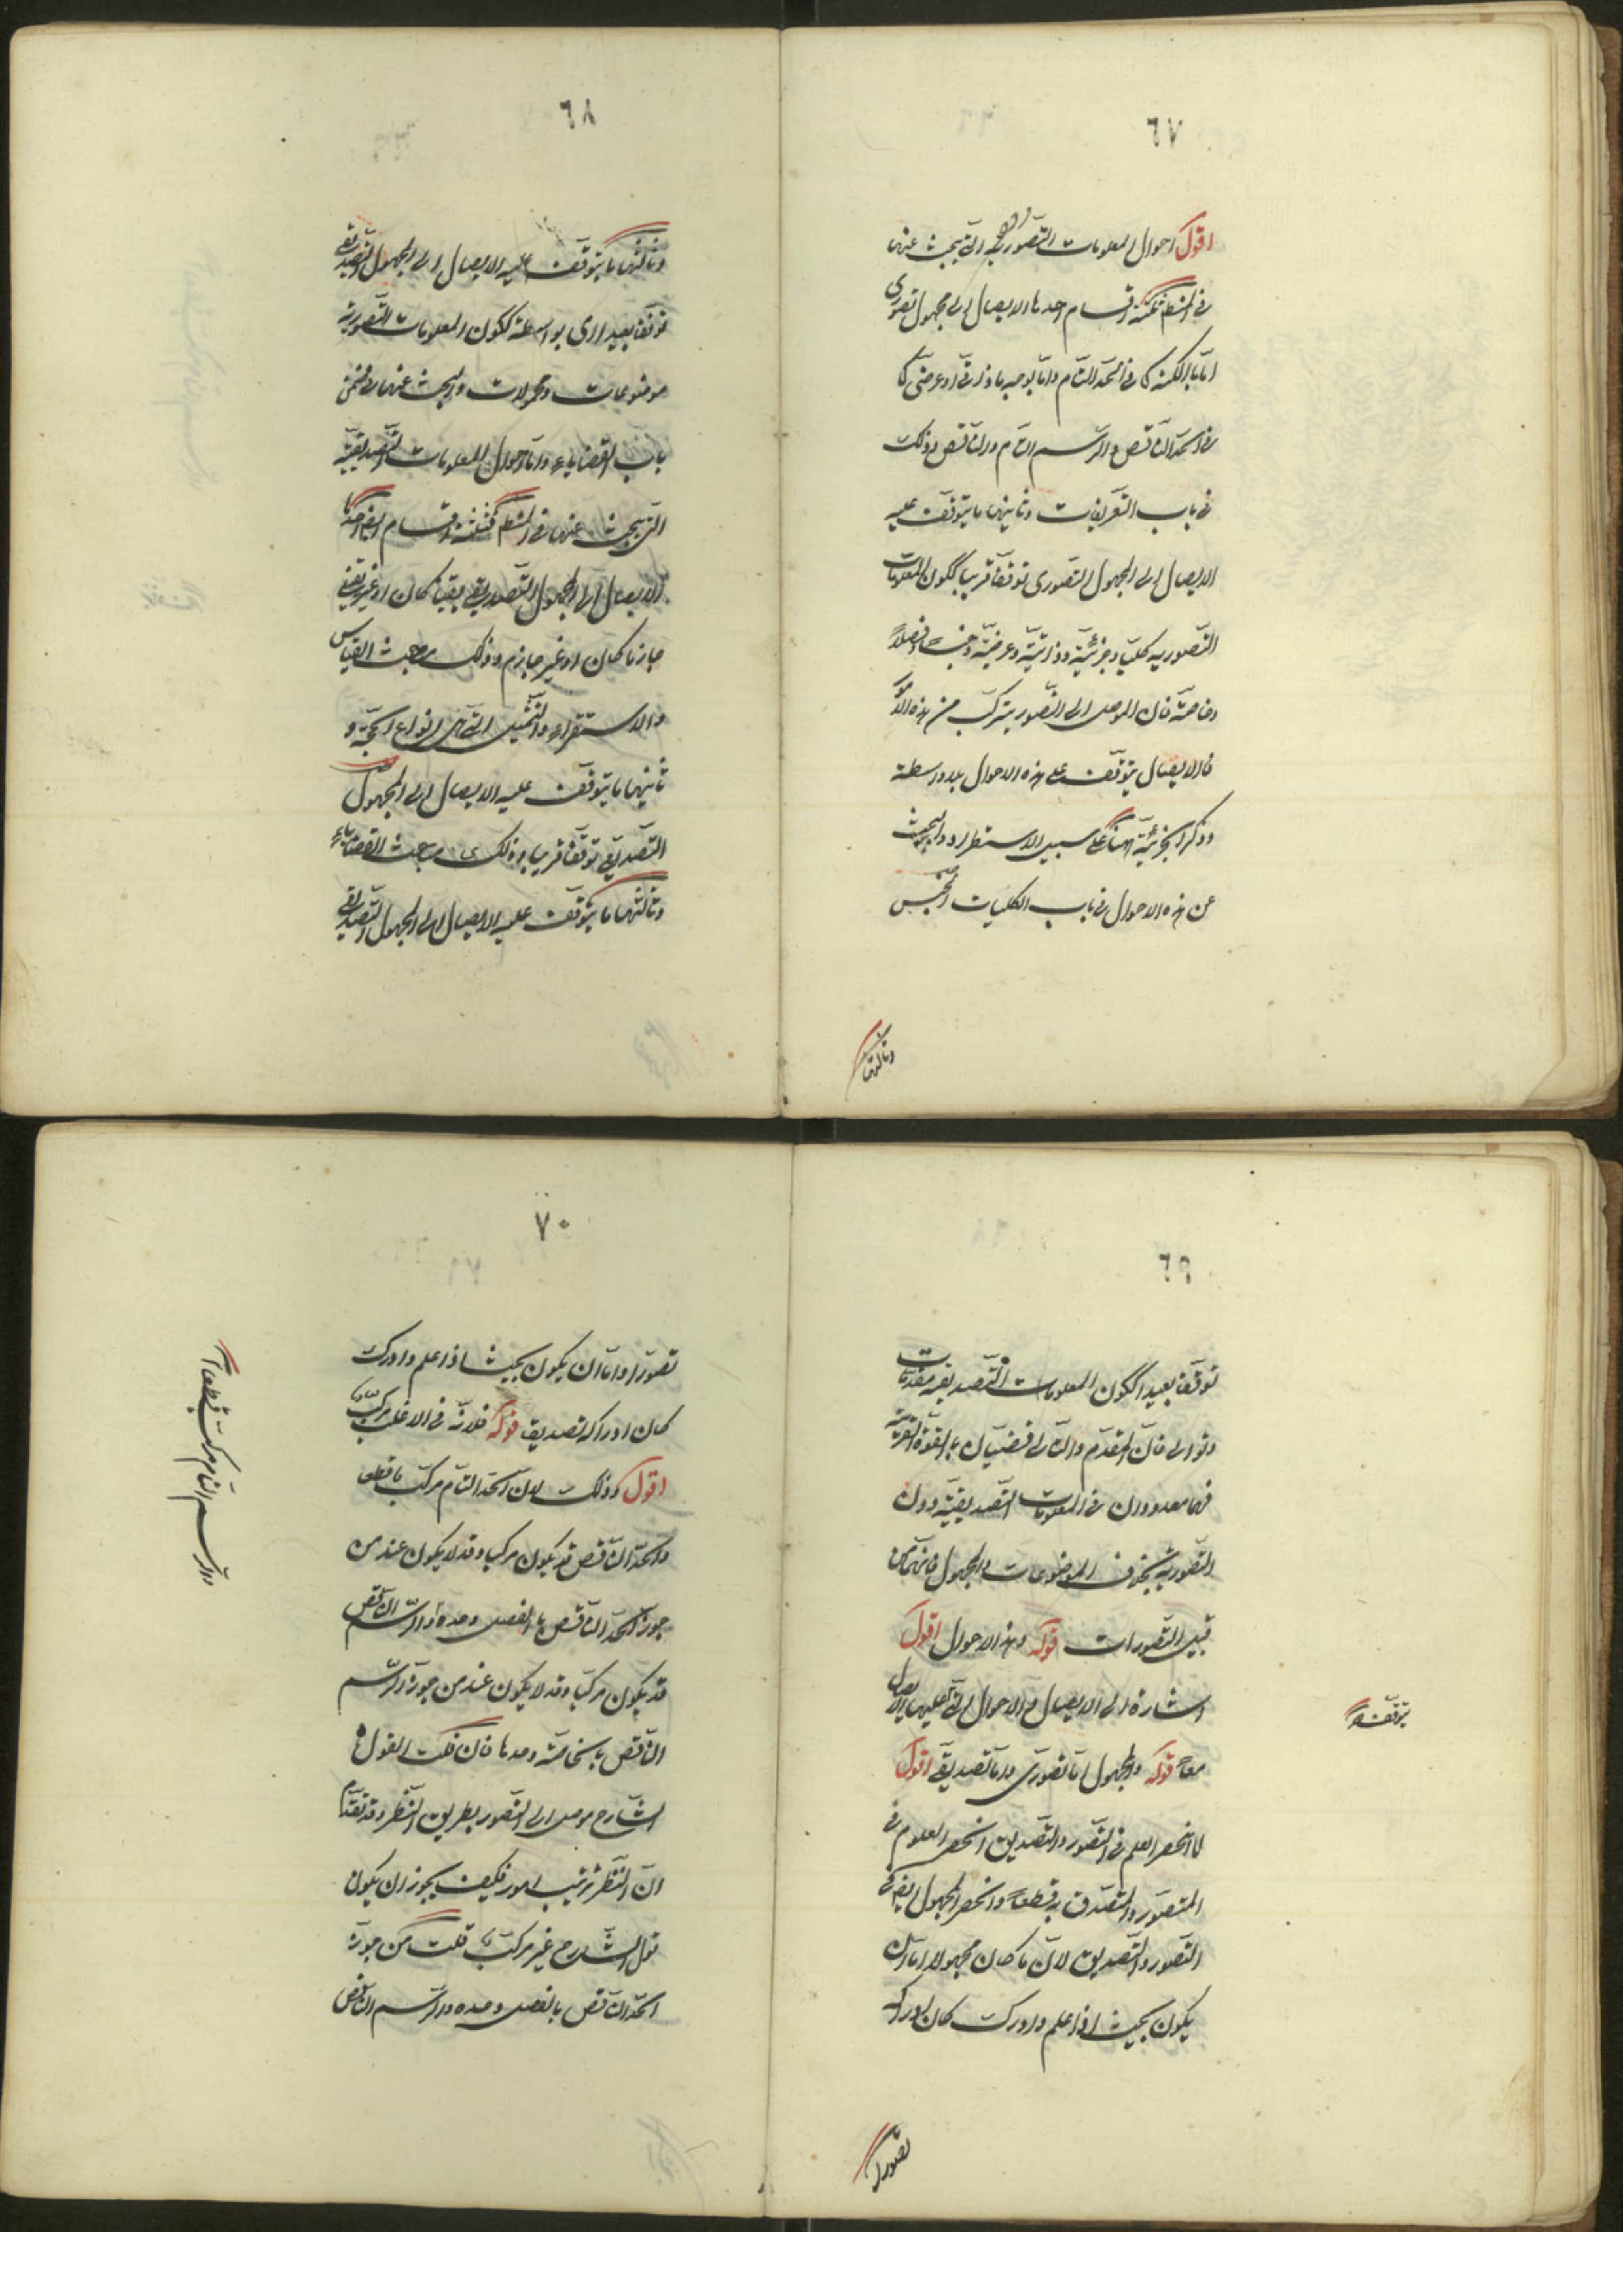 ٦٧
اقول احوال المعلومات التصورية التى يبحث عنها
فى المنطق ثلثة اقسام احدها الايصال الى مجهول تصورى
اما بالكنه كما فى الحد التام واما بوجه ما ذاتى او عرضى كما
فى الحد الناقص والرسم التام والناقص وذلك
فى باب التعريفات وثانيها ما يتوقف عليه
الايصال الى المجهول التصورى توقفا قريبا ككون المعلومات
التصوريه كليّة وجزئيّة وذاتيّة وعرضيّة وجنسا وفصلا
وخاصّة فان الموصل الى التصور يتركب من هذه الامور
فالايصال يتوقف على هذه الاحوال بلا واسطة
وذكر الجزئيّة هناك على سبيل الاستطراد والبحث
عن هذه الاحوال فى باب الكليات الخمس
وثالثها
٦٨
وثالثها ما يتوقف عليه الايصال الى المجهول التصديقى
توقفا بعيدا اى بواسطة ككون المعلومات التصورية
موضوعات ومحمولات والبحث عنها فى ضمن
باب القضاياء واما احوال المعلومات التصديقيّة
التى يبحث عنها فى المنطق فثلثة اقسام ايضا احدها
الايصال الى المجهول التصديقى يقينيا كان او غير يقينى
جازما كان او غير جازم وذلك مباحث القياس
والاستقراء والتمثيل التى هى انواع الحجّة و
ثانيها ما يتوقف عليه الايصال الى المجهول
التصديقى توقفا قريبا وذلك مباحث القضاياء
وثالثها ما يتوقف عليه الايصال الى المجهول التصديقى
٦٩
توقفا بعيدا ككون المعلومات التصديقيه مقدمات
وتوالى فان المقدم والتالى قضيتان بالقوة القريبة
فهما معدودان فى المعلومات التصديقيّة دون
التصورية بخلاف الموضوعات والمحمول فانهما من
قبيل التصورات قوله وهذه الاحوال اقول
اشارة الى الايصال والاحوال التى عليها الايصال
يتوقف
معاً قوله والمجهول اما تصورى واما تصديقى اقول
لما انحصر العلم فى التصور والتصديق انحصر المعلوم فى
المتصور والمتصدق به قطعاً وانحصر المجهول ايضا فى
التصور والتصديق لانّ ما كان مجهولا اما ان
يكون بحيث اذا علم وادرك كان ادراكه
تصورا
٧٠
تصوّرا واما ان يكون بحيث اذا علم وادرك
كان ادراكه تصديقا قوله فلانّه فى الاغلب مركّب
اقول وذلك لان الحد التام مركب قطعا
والحد الناقص قد يكون مركبا وقد لا يكون عند من
جوز الحد الناقص بالفصل وحده والرسم الناقص
والرسم التام مركب قطعا
قد يكون مركبا وقد لا يكون عند من جوز الرسم
الناقص بالخاصّة وحدها فان قلت القول
الشارح موصل الى التصور بطريق النظر وقد تقدم
ان النظر ترتيب امور فكيف يجوز ان يكون
قول الشارح غير مركب قلت من جوز
الحد الناقص بالفصل وحده والرسم الناقص